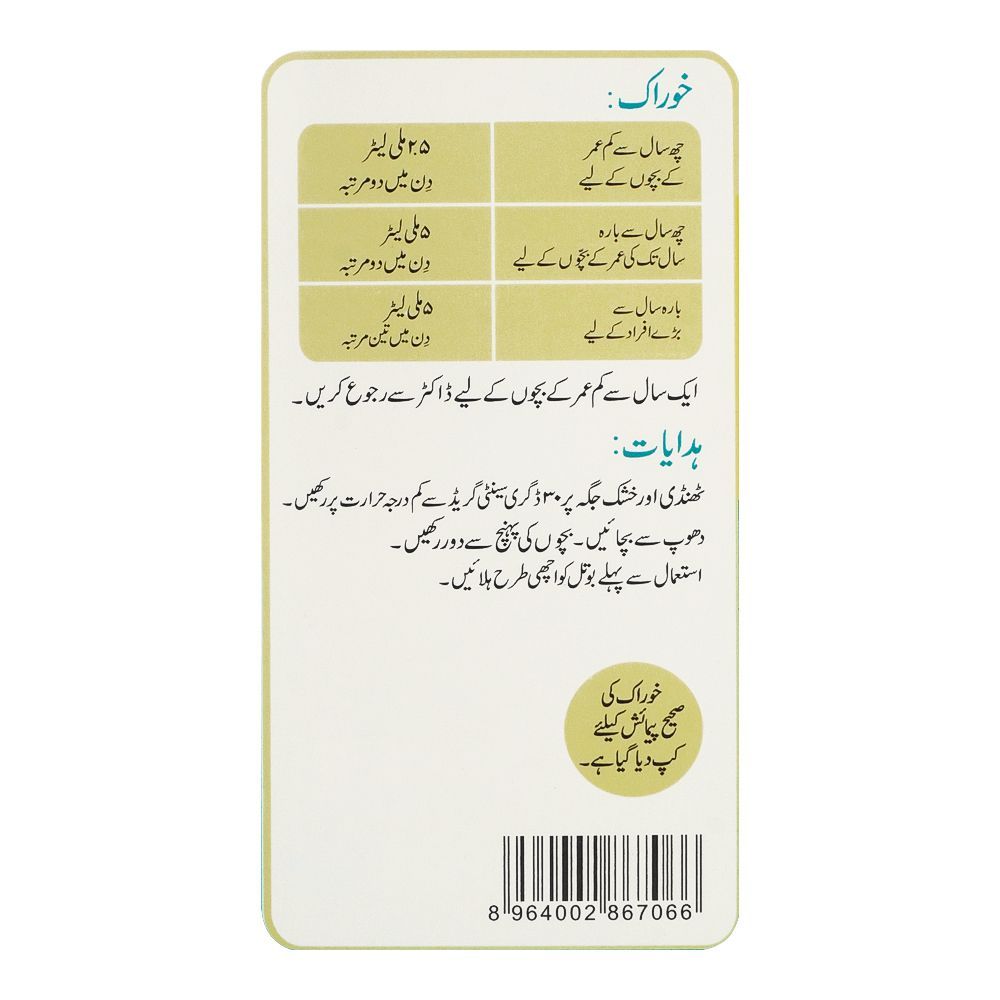 خوراک:
چھ سال سے کم عمر
کے بچوں کے لیے
۲.۵ ملی لیٹر
دِن میں دو مرتبہ
چھ سال سے بارہ
سال تک کی عمر کے بچّوں کے لیے
۵ ملی لیٹر
دِن میں دو مرتبہ
بارہ سال سے
بڑے افراد کے لیے
۵ ملی لیٹر
دِن میں تین مرتبہ
ایک سال سے کم عمر کے بچوں کے لیے ڈاکٹر سے رجوع کریں۔
ہدایات:
ٹھنڈی اور خشک جگہ پر ۳۰ ڈگری سینٹی گریڈ سے کم درجہ حرارت پر رکھیں۔
دھوپ سے بچائیں۔ بچوں کی پہنچ سے دور رکھیں۔
استعمال سے پہلے بوتل کو اچھی طرح ہلائیں۔
خوراک کی
صحیح پیمائش کیلئے
کپ دیا گیا ہے۔
8 964002 867066